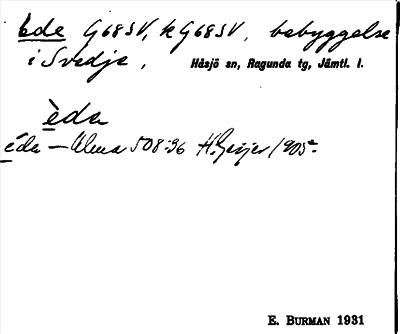 Ede G68SV, kG68SV, bebyggelse
i Svedje, Håsjö sn, Ragunda tg, Jämtl. l.
èda
éda — Alma 508:36 H. Geijer 1905.
E. BURMAN 1931